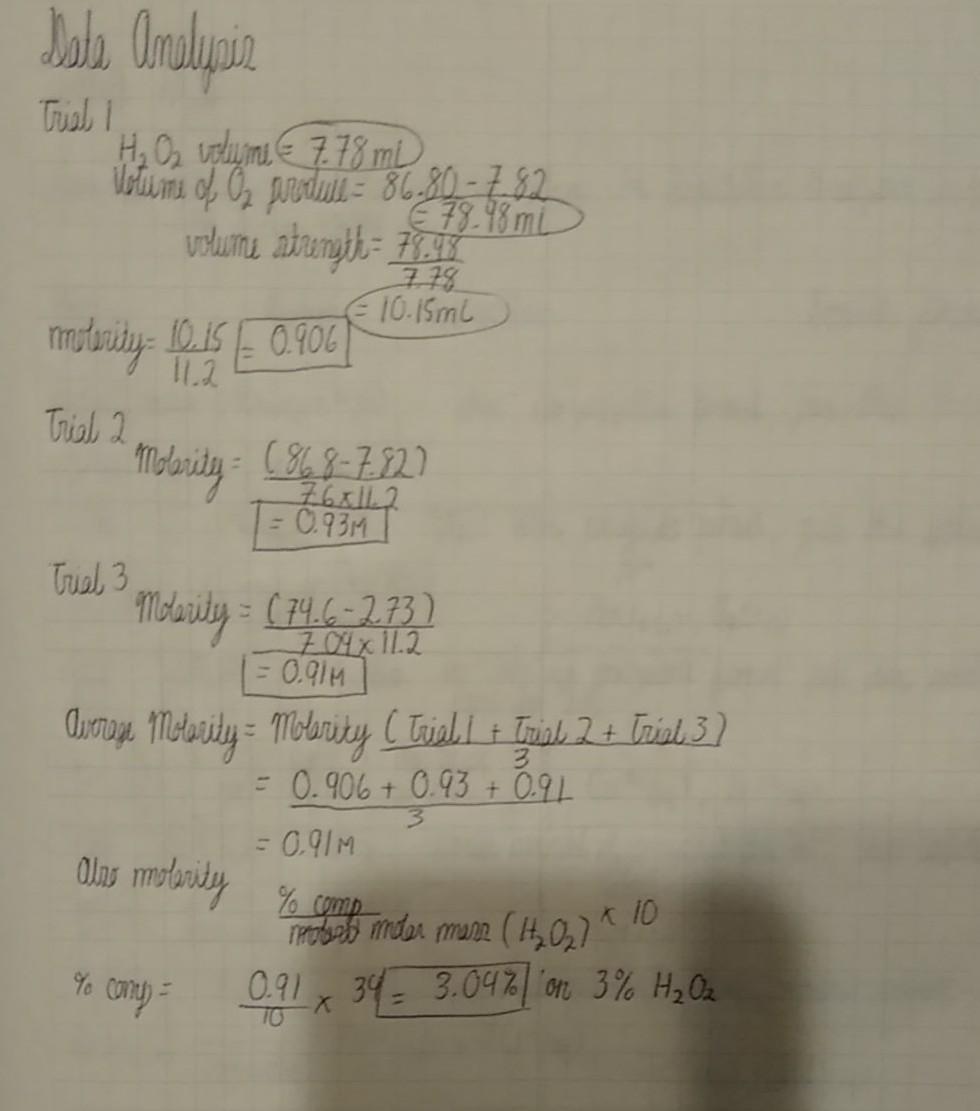 Data Analysis
Trial 1
H2O2 volume = 7.78 ml
Volume of O2 produce = 86.80 - 7.82
= 78.98 ml
volume strength = 78.98
7.78
= 10.15 mL
molarity = 10.15 = 0.906
11.2
Trial 2
Molarity = (86.8 - 7.82)
7.6 x 11.2
= 0.93M
Trial 3
Molarity = (74.6 - 2.73)
7.04 x 11.2
= 0.91M
Average Molarity = Molarity (Trial 1 + Trial 2 + Trial 3)
3
= 0.906 + 0.93 + 0.91
3
= 0.91M
Also molarity
% comp x 10
molar mass (H2O2)
% comp = 0.91 x 34 = 3.04% on 3% H2O2
10